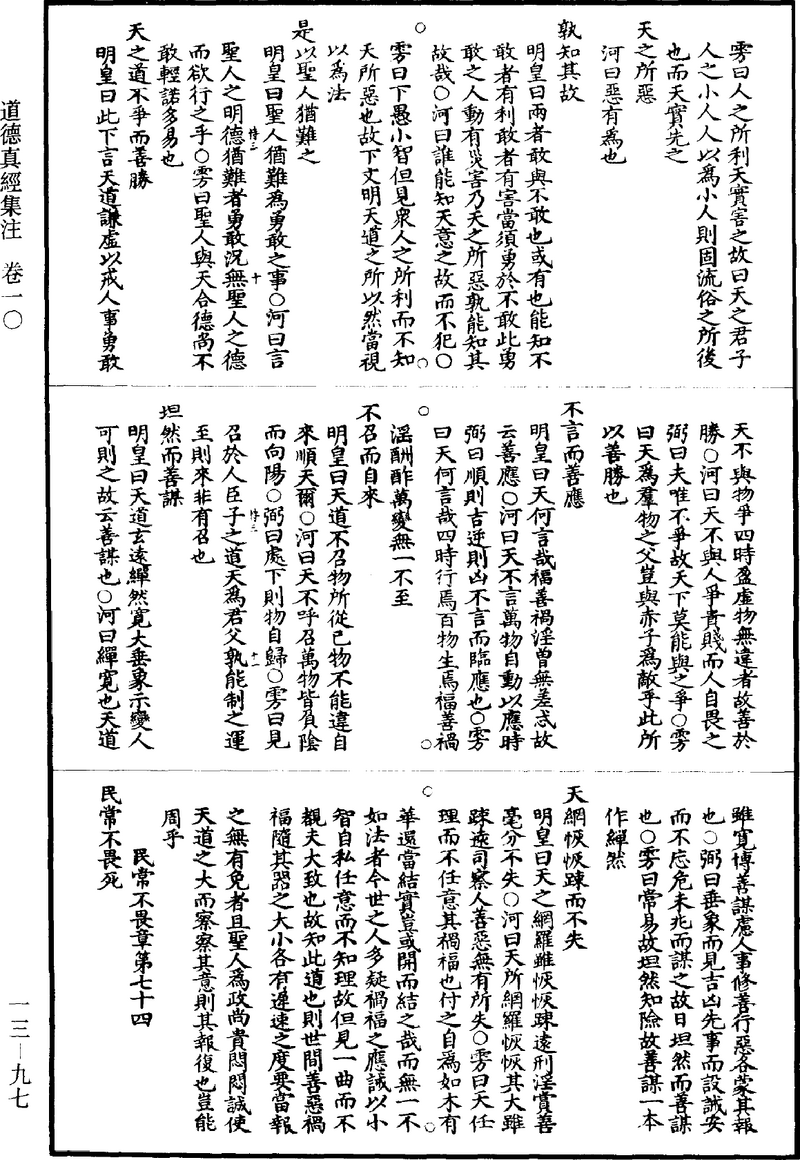 雱曰人之所利天實害之故曰天之君子
人之小人人以為小人則固流俗之所後
也而天實先之
天之所惡
河曰惡有為也
孰知其故
明皇曰兩者敢與不敢也或有也能知不
敢者有利敢者有害當須勇於不敢此勇
敢之人動有災害乃天之所惡孰能知其
故哉○河曰誰能知天意之故而不犯○
雱曰下愚小智但見衆人之所利而不知
天所惡也故下文明天道之所以然當視
以為法
是以聖人猶難之
明皇曰聖人猶難為勇敢之事○河曰言
聖人之明德猶難者勇敢況無聖人之德
而欲行之乎○雱曰聖人與天合德尚不
敢輕諾多易也
天之道不爭而善勝
明皇曰此下言天道謙虛以戒人事勇敢
天不與物爭四時盈虛物無違者故善於
勝○河曰天不與人爭貴賤而人自畏之
弼曰夫唯不爭故天下莫能與之爭○雱
曰天為羣物之父豈與赤子為敵乎此所
以善勝也
不言而善應
明皇曰天何言哉福善禍淫曾無差忒故
云善應○河曰天不言萬物自動以應時
弼曰順則吉逆則凶不言而臨應也○雱
曰天何言哉四時行焉百物生焉福善禍
淫酬酢萬變無一不至
不召而自來
明皇曰天道不召物所從已物不能違自
來順天爾○河曰天不呼召萬物皆負陰
而向陽○弼曰處下則物自歸○雱曰見
召於人臣子之道天為君父孰能制之運
至則來非有召也
坦然而善謀
明皇曰天道玄遠繟然寬大垂象示變人
可則之故云善謀也○河曰繟寬也天道
雖寬博善謀慮人事修善行惡各蒙其報
也○弼曰垂象而見吉凶先事而設誠安
而不忘危未兆而謀之故曰坦然而善謀
也○雱曰常易故坦然知險故善謀一本
作繟然
天網恢恢踈而不失
明皇曰天之網羅雖恢恢踈遠刑淫賞善
毫分不失○河曰天所網羅恢恢其大雖
踈遠司察人善惡無有所失○雱曰天任
理而不任意其禍福也付之自為如木有
華還當結實豈或開而結之哉而無一不
如法者今世之人多疑禍福之應誠以小
智自私任意而不知理故但見一曲而不
觀夫大致也故知此道也則世間善惡禍
福隨其器之大小各有遲速之度要當報
之無有免者且聖人為政尚貴悶悶誠使
天道之大而察察其意則其報復也豈能
周乎
民常不畏章第七十四
民常不畏死
道德真經集注　卷一○
一三—九七